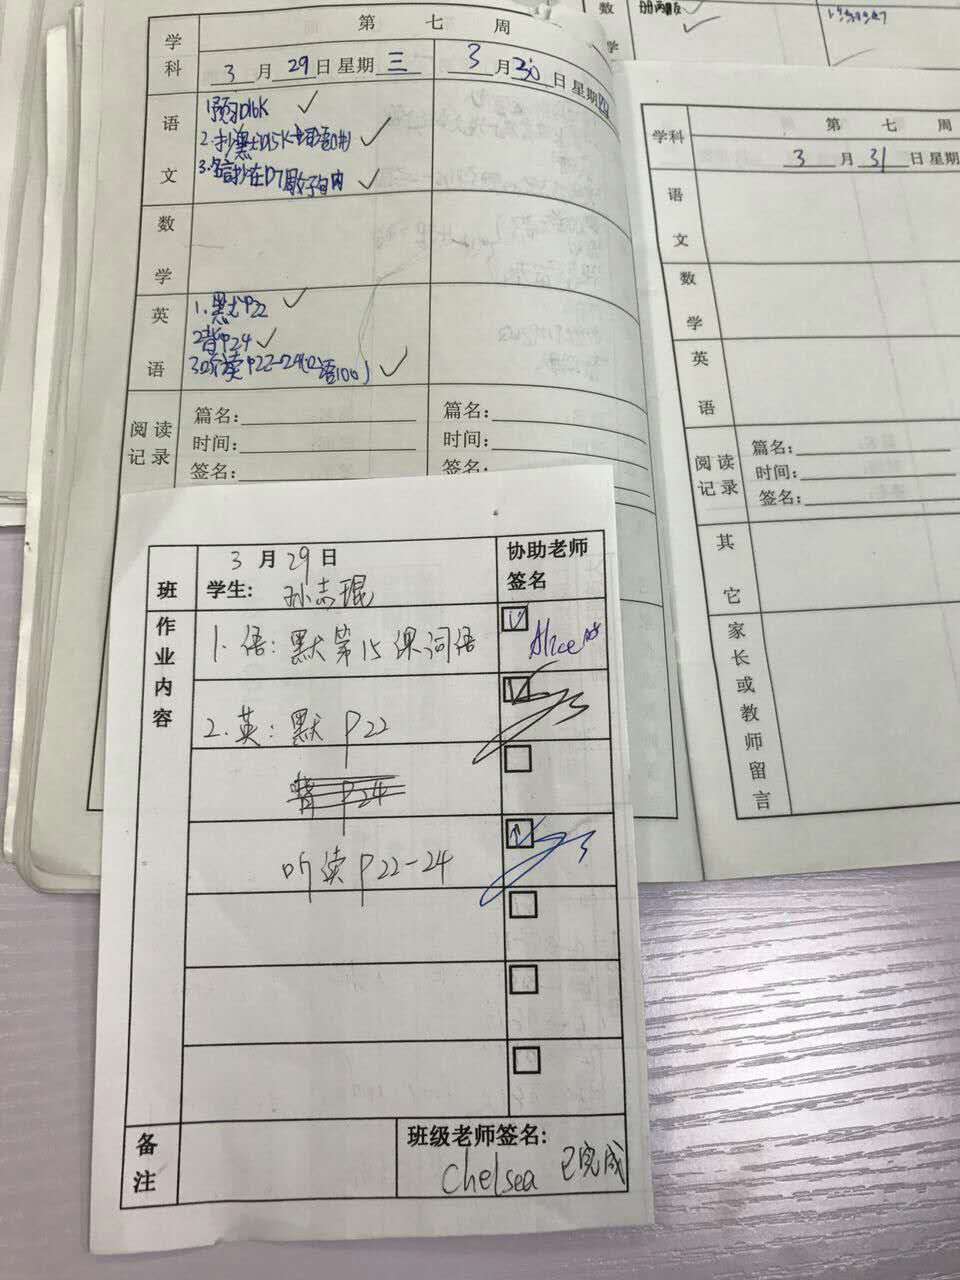 数
学
册
第 七 周
学
科
3月29日 星期三
3月30日 星期四
语
文
1.预习D16K ✓
2.抄默D15K词语 ✓
3.名言抄在D7周好句内 ✓
数
学
英
语
1.默P22 ✓
2.背P24 ✓
3.听读P22-24(口语100) ✓
阅读
记录
篇名:
时间:
签名:
篇名:
时间:
签名:
学科
第 七 周
3月31日 星期
语
文
数
学
英
语
阅读
记录
篇名:
时间:
签名:
其
它
家
长
或
教
师
留
言
班
3月29日
学生: 孙志琨
协助老师
签名
作
业
内
容
1.语:默第15课词语
Alice
2.英:默P22
背P24
听读P22-24
备
注
班级老师签名:
Chelsea 已完成